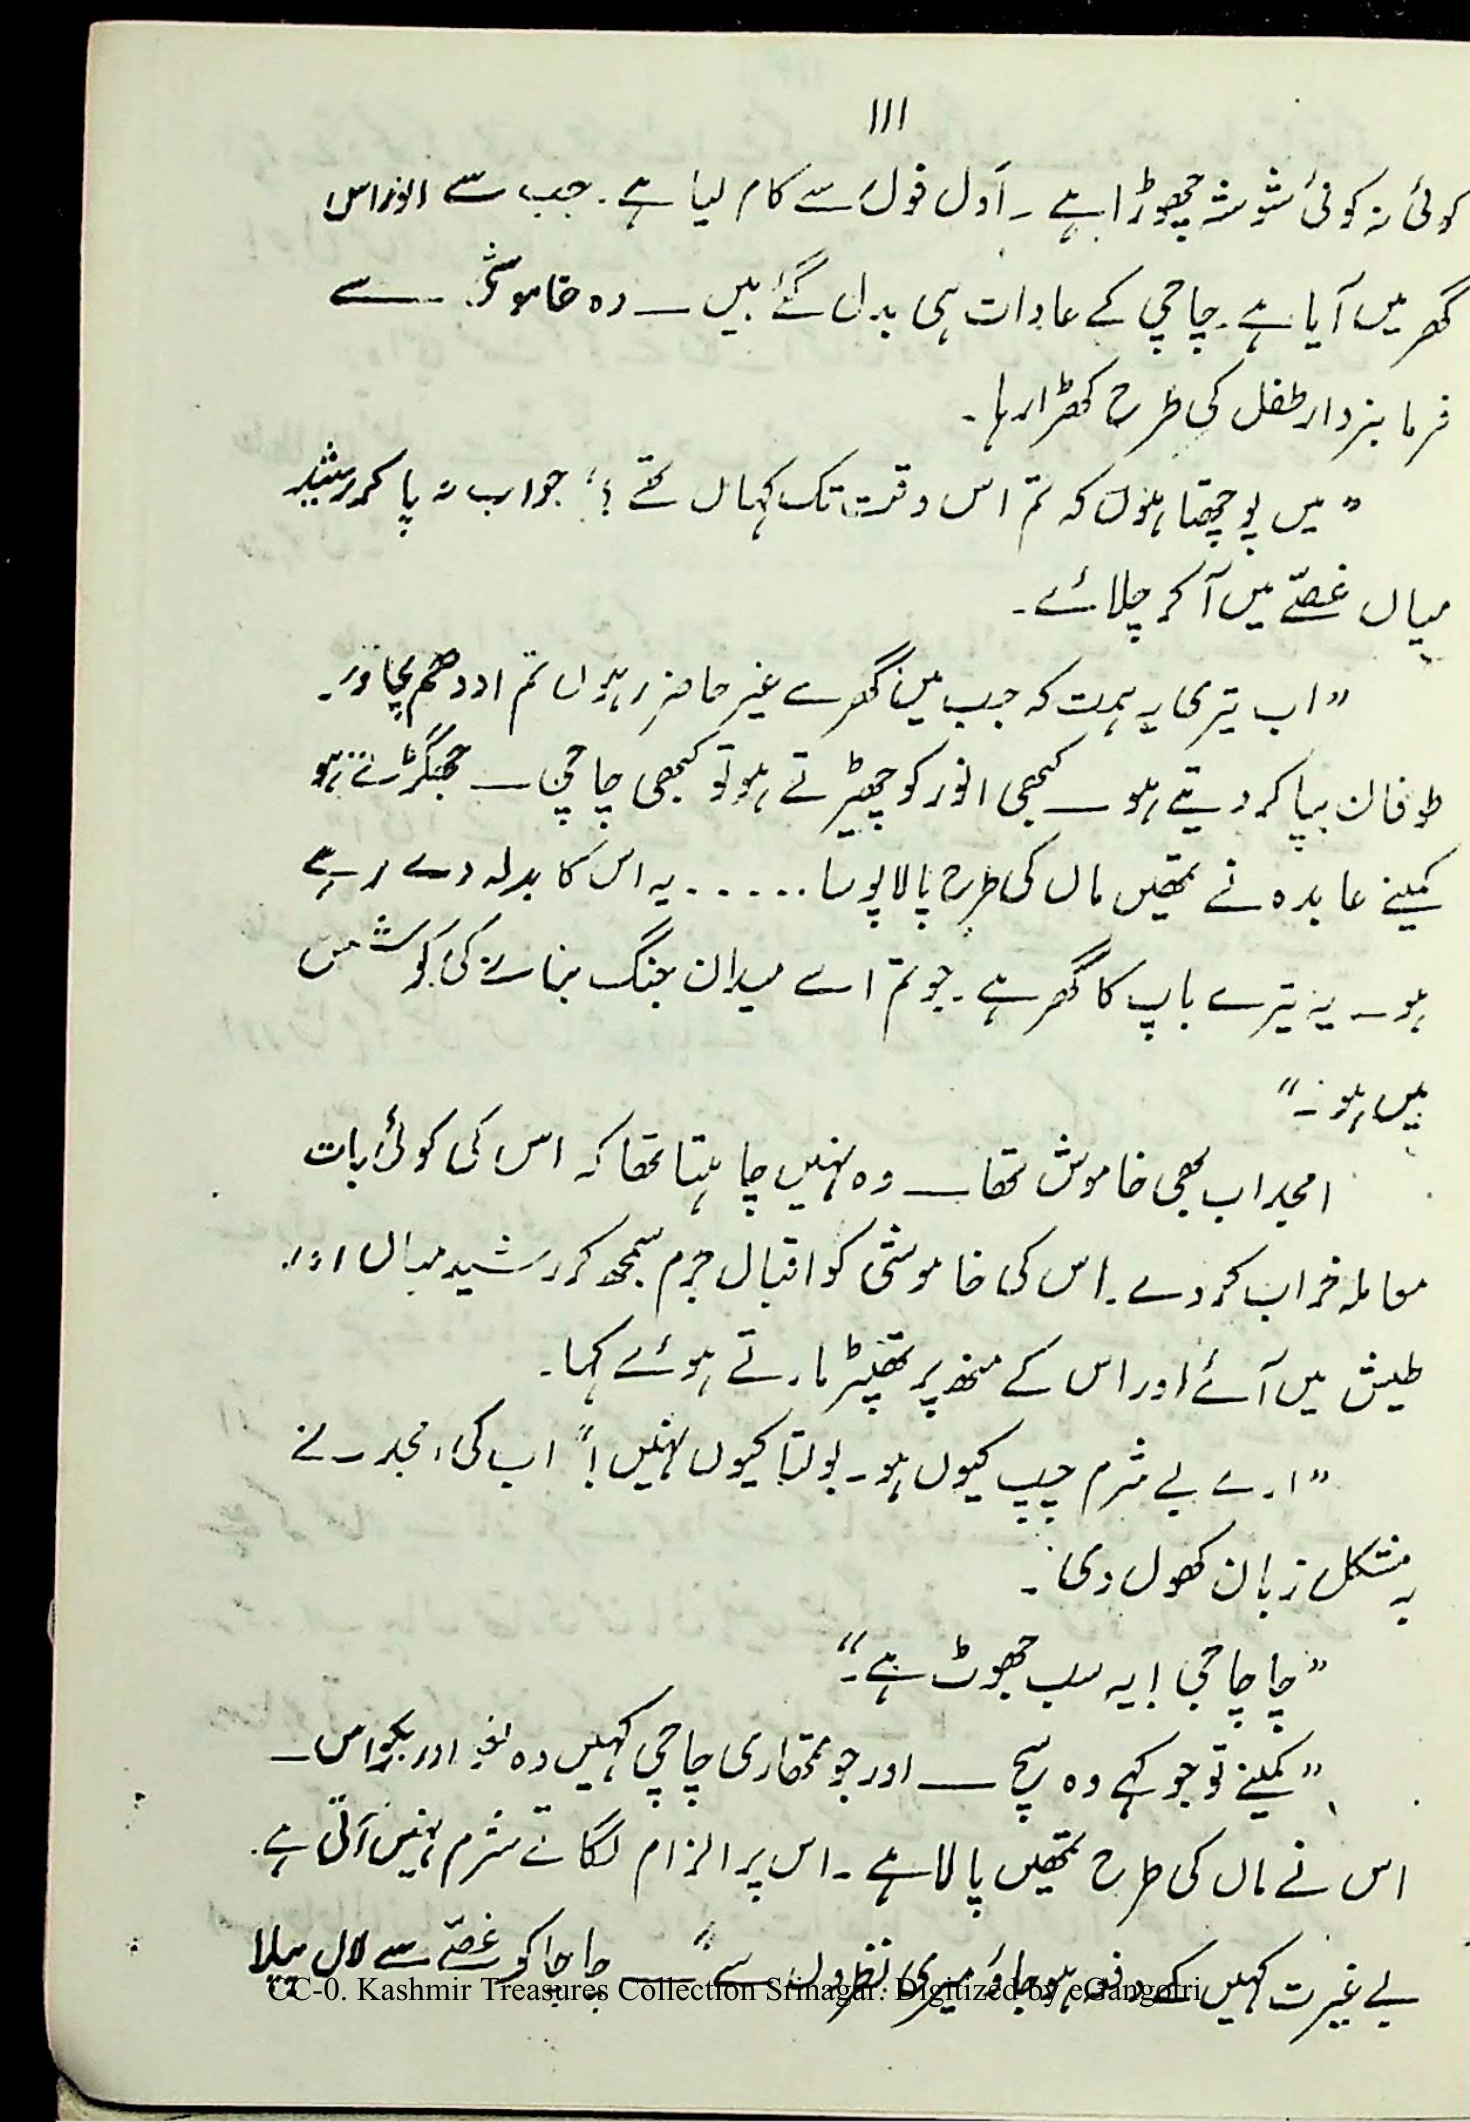 111
کوئی نہ کوئی شوشہ چھوڑا ہے ۔ اَول فول سے کام لیا ہے ۔ جب سے انور اس
گھر میں آیا ہے ۔ چاچی کے عادات ہی بدل گئے ہیں — وہ خاموشی سے
فرمانبردار طفل کی طرح کھڑا رہا ۔
” میں پوچھتا ہوں کہ تم اس وقت تک کہاں تھے ؟“ جواب نہ پا کر رشید
میاں غصّے میں آکر چلائے ۔
” اب تیری یہ ہمت کہ جب میں گھر سے غیر حاضر رہوں تم اودھم مچا دو ۔
طوفان بپا کر دیتے ہو — کبھی انور کو چھیڑتے ہو تو کبھی چاچی — جھگڑتے ہو
کمینے عابدہ نے تمھیں ماں کی طرح پالا پوسا ...... یہ اس کا بدلہ دے رہے
ہو — یہ تیرے باپ کا گھر ہے ۔ جو تم اسے میدان جنگ بنانے کی کوشش
میں ہو ۔“
امجد اب بھی خاموش تھا — وہ نہیں چاہتا تھا کہ اس کی کوئی بات
معاملہ خراب کر دے ۔ اس کی خاموشی کو اقبال جرم سمجھ کر رشید میاں اور
طیش میں آئے اور اس کے منھ پر تھپڑ مارتے ہوئے کہا ۔
” ارے بے شرم چپ کیوں ہو ۔ بولتا کیوں نہیں !“ اب کی امجد نے
بہ مشکل زبان کھول دی ۔
” چاچا جی ! یہ سب جھوٹ ہے ۔“
” کمینے تو جو کہے وہ سچ — اور جو تمھاری چاچی کہیں وہ لغو اور بکواس —
اس نے ماں کی طرح تمھیں پالا ہے ۔ اس پر الزام لگاتے شرم نہیں آتی ہے ۔
بے غیرت کہیں کے دفع ہو جاؤ میری نظروں سے “ — چاچا کو غصّے سے لال پیلا
CC-0. Kashmir Treasures Collection Srinagar. Digitized by eGangotri